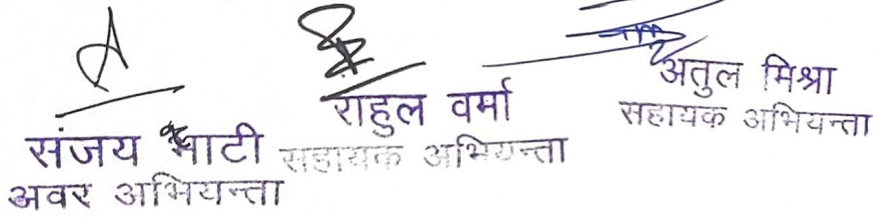 संजय भाटी
अवर अभियन्ता
राहुल वर्मा
सहायक अभियन्ता
अतुल मिश्रा
सहायक अभियन्ता